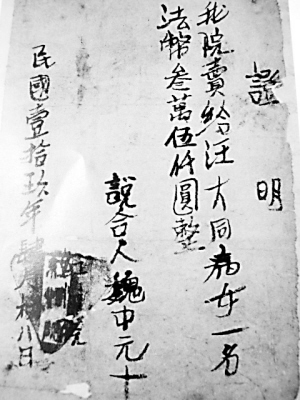 證明
我院賣給汪大同病女一名
法幣叁萬伍仟圓整
說合人 魏中元十
民國壹拾玖年肆月拾八日